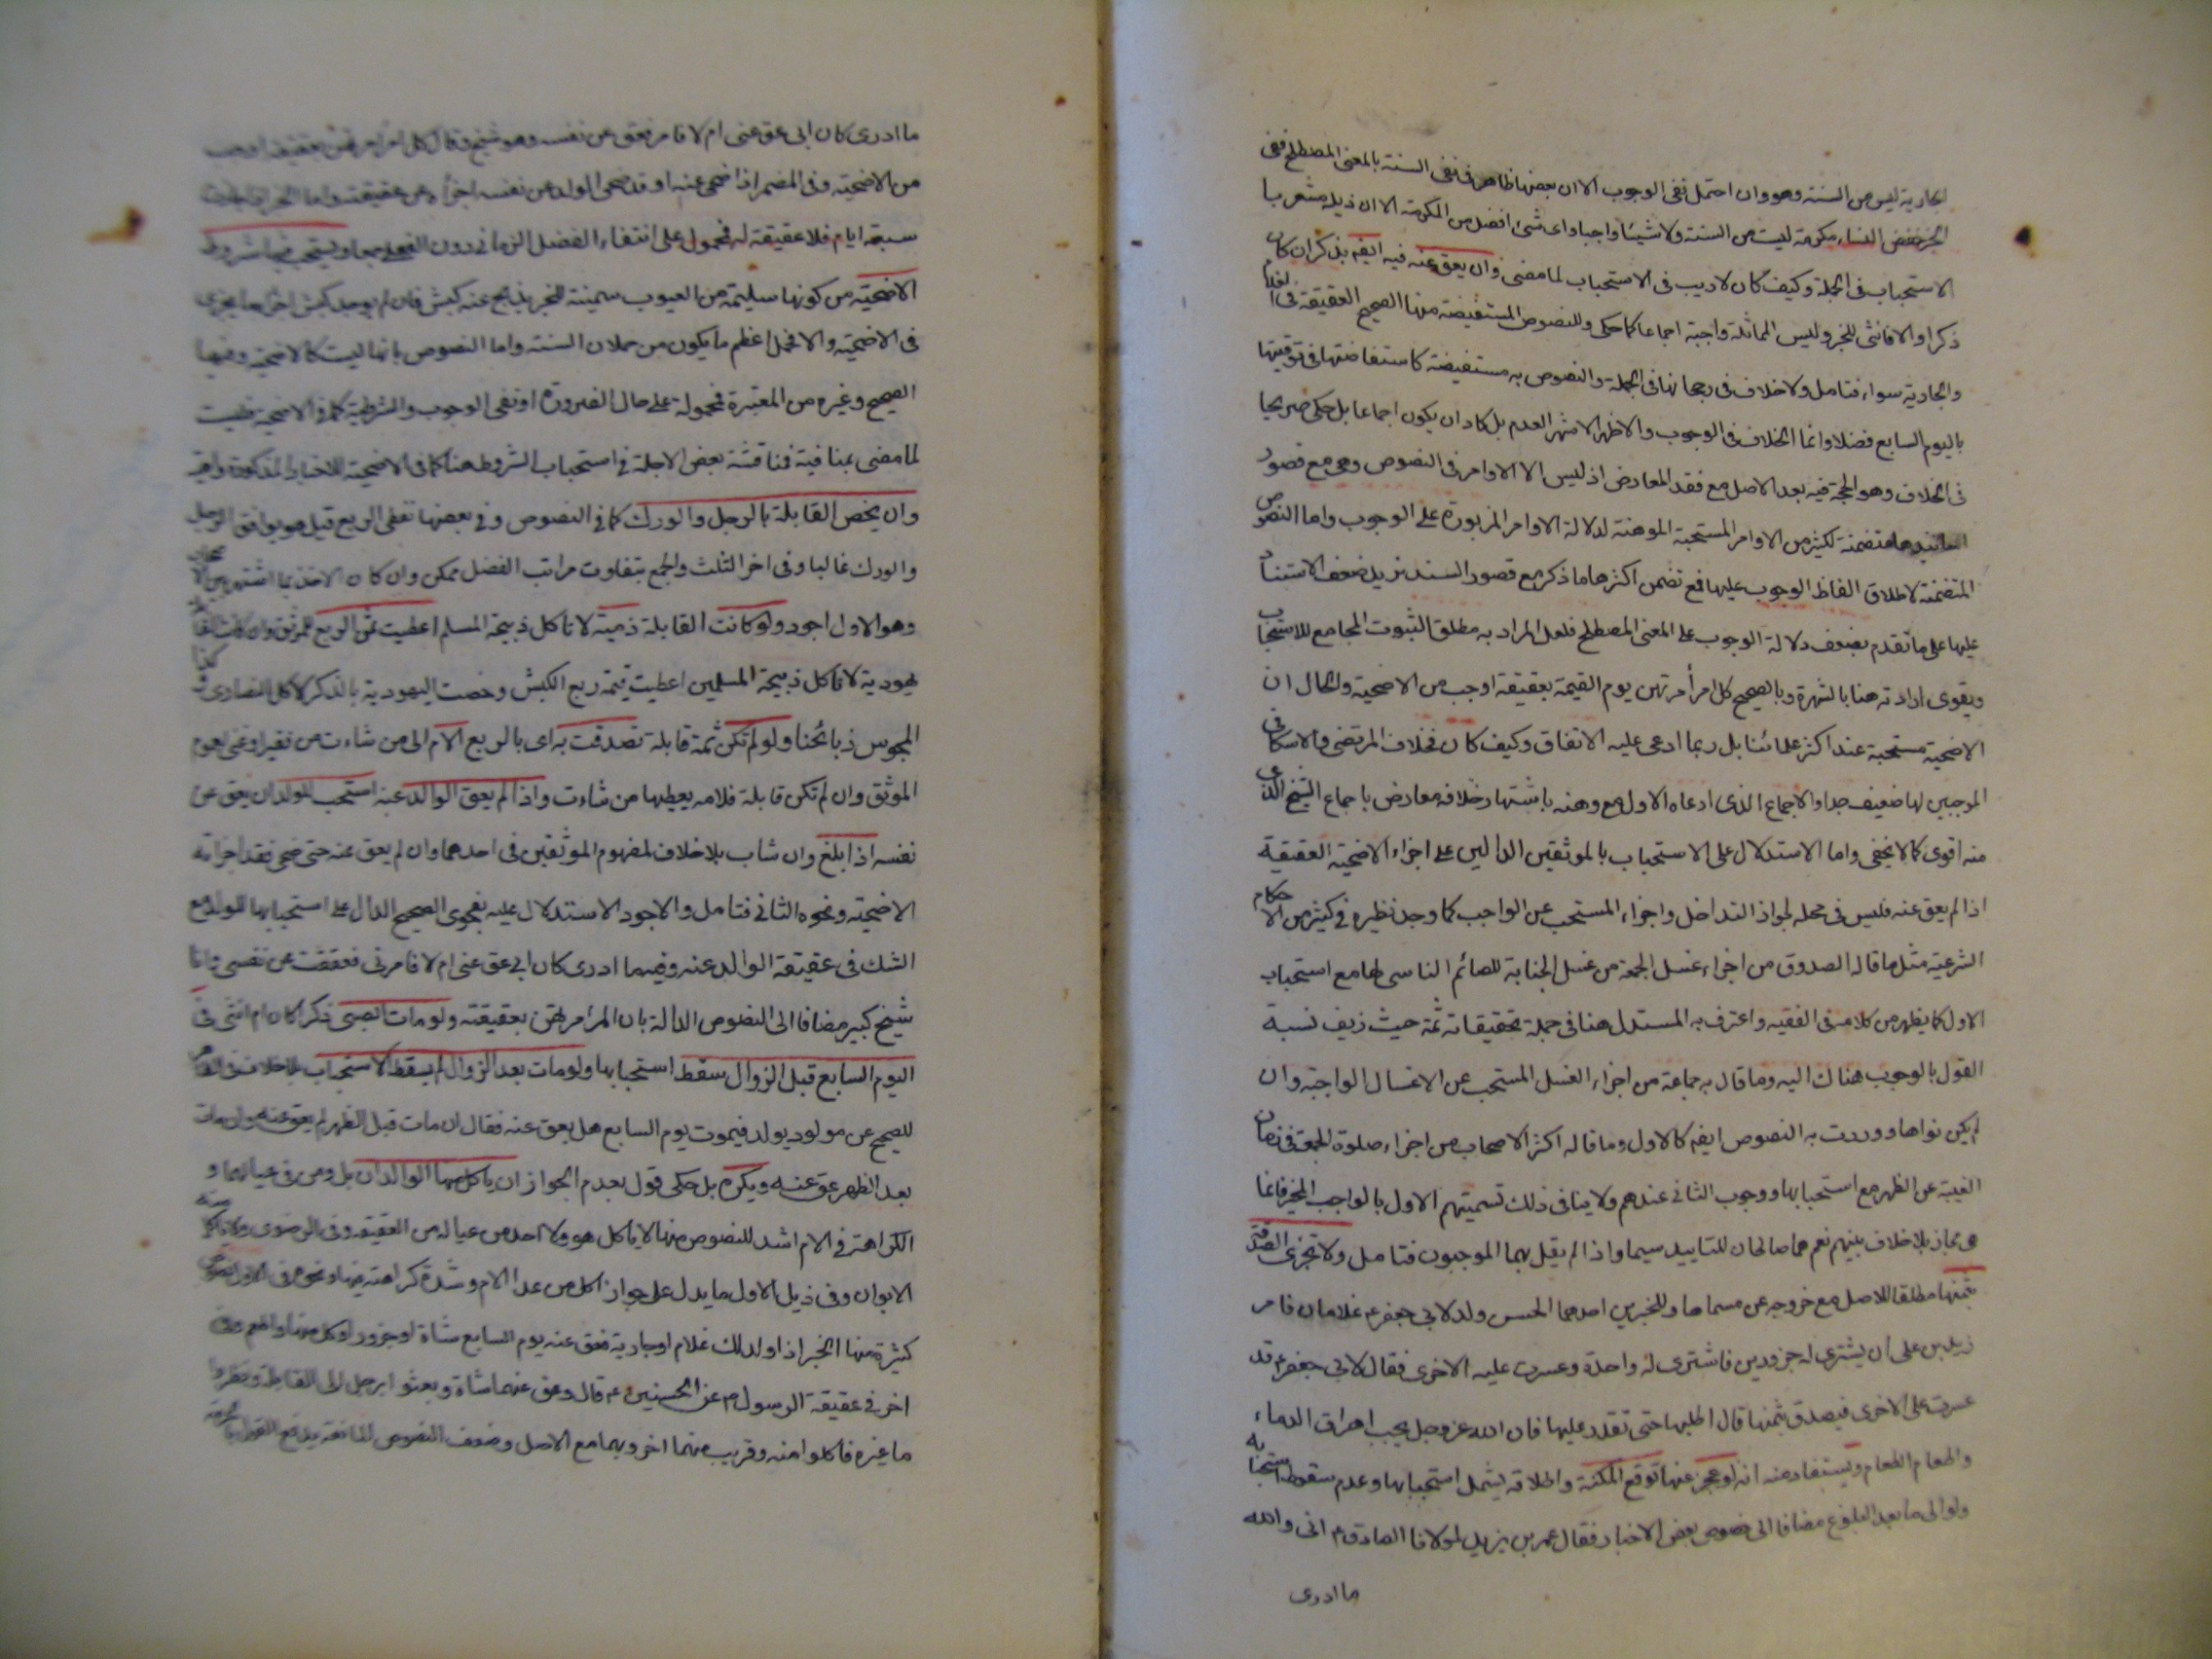 الجارية ليس من السنة وهو وان احتمل نفى الوجوب الا ان بعضها ظاهر فى نفى السنة بالمعنى المصطلح ففى
الخبر خفض النساء مكرمة ليست من السنة ولا شيئا واجبا واى شئ افضل من المكرمة الا ان ذيله مشعر با
الاستحباب فى الجملة وكيف كان لا ريب فى الاستحباب لما مضى وان يعق عنه فيه ايضم بذكر ان كان
ذكرا والا فانثى للخبر وليس المماثلة واجبة اجماعا كما حكى وللنصوص المستفيضة منها الصحيح العقيقة فى الغلام
والجارية سواء فتامل ولا خلاف فى رجحانها فى الجملة والنصوص به مستفيضة كاستفاضتها فى توقيتها
باليوم السابع فضلا وانما الخلاف فى الوجوب والاظهر الاشهر العدم بل كاد ان يكون اجماعا بل حكى صريحا
فى الخلاف وهو الحجة فيه بعد الاصل مع فقد المعارض اذ ليس الا الاوامر فى النصوص وهى مع قصور
اسانيدها متضمنة لكثير من الاوامر المستحبة الموهنة لدلالة الاوامر المزبورة على الوجوب واما النصوص
المتضمنة لاطلاق الفاظ الوجوب عليها فمع تضمن اكثرها ما ذكر مع قصور السند يزيد ضعف الاستناد
عليها على ما تقدم بضعف دلالة الوجوب على المعنى المصطلح فلعل المراد به مطلق الثبوت المجامع للاستحباب
ويقوى ارادته هنا بالشهرة وبالصحيح كل امرأ مرتهن يوم القيمة بعقيقة اوجب من الاضحية والحال ان
الاضحية مستحبة عند اكثر علمائنا بل ربما ادعى عليه الاتفاق وكيف كان فخلاف المرتضى والاسكافى
الموجبين لها ضعيف جدا والاجماع الذى ادعاه الاول مع وهنه باشتهار خلافه معارض باجماع الشيخ الذى
منه اقوى كما لا يخفى واما الاستدلال على الاستحباب بالموثقين الدالين على اجزاء الاضحية العقيقة
اذا لم يعق عنه فليس فى محله لجواز التداخل واجزاء المستحب عن الواجب كما وجد نظيره فى كثير من الاحكام
الشرعية مثل ما قاله الصدوق من اجزاء غسل الجمعة من غسل الجنابة للصائم الناسى لها مع استحباب
الاول كما يظهر من كلامه فى الفقيه واعترف به المستدل هنا فى جملة تحقيقاته ثمة حيث زيف نسبة
القول بالوجوب هناك اليه وما قال به جماعة من اجزاء الغسل المستحب عن الاغسال الواجبة وان
لم يكن نواها ووردت به النصوص ايضم كالاول وما قاله اكثر الاصحاب من اجزاء صلوة الجمعة فى زمان
الغيبة عن الظهر مع استحبابها ووجوب الثانى عندهم ولا ينافى ذلك تسميتهم الاول بالواجب المخير فانما
هى مجاز بلا خلاف بينهم نعم هما صالحان للتاييد سيما واذ لم يقل بهما الموجبون فتامل ولا تجزى الصدقة
بثمنها مطلقا للاصل مع خروجه عن مسماها وللخبرين احدهما الحسن ولد لابى جعفر ع غلامان فامر
زيد بن على ان يشترى له جزورين فاشترى له واحدة وعسرت عليه الاخرى فقال لابى جعفر ع قد
عسرت على الاخرى فيصدق بثمنها قال اطلبها حتى تقدر عليها فان الله عز وجل يحب اهراق الدماء
واطعام الطعام ويستفاد منه انه لو عجز عنها توقع المكنة واطلاقه يشمل استحبابها وعدم سقوط استحبابه
ولو الى ما بعد البلوغ مضافا الى خصوص بعض الاخبار فقال عمر بن يزيد لمولانا الصادق ع انى والله
ما ادرى
ما ادرى كان ابى عق عنى ام لا فامر فعق عن نفسه وهو شيخ وقال كل امرأ مرتهن بعقيقة اوجب
من الاضحية وفى المضمر اذا ضحى عنه او قد ضحى الولد عن نفسه اجزأه عن عقيقته واما الخبر اذا جازت
سبعة ايام فلا عقيقة له فمحمول على انتفاء الفضل الزمانى دون الفعل جمعا ويستحب فيها شروط
الاضحية من كونها سليمة من العيوب سمينة للخبر يذبح عنه كبش فان لم يوجد كبش اجزأه ما يجزى
فى الاضحية والا فحمل اعظم ما يكون من حملان السنة واما النصوص بانها ليست كالاضحية وفيها
الصحيح وغيره من المعتبرة فمحمولة على حال الضرورة او نفى الوجوب والشرطية كما فى الاضحية فليست
لما مضى بمنافية فمناقشة بعض الاجلة فى استحباب الشروط هنا كما فى الاضحية للاخبار المذكورة واهية
وان يخص القابلة بالرجل والورك كما فى النصوص وفى بعضها تعطى الربع قيل هو يوافق الرجل
والورك غالبا وفى اخر الثلث والجمع بتفاوت مراتب الفضل ممكن وان كان الاخذ بما اشتهر بين الاصحاب
وهو الاول اجود ولو كانت القابلة ذمية لا تاكل ذبيحة المسلم اعطيت ثمن الربع للموثق وان كانت القابلة
يهودية لا تاكل ذبيحة المسلمين اعطيت قيمة ربع الكبش وخصت اليهودية بالذكر لاكل النصارى وكذا
المجوس ذبائحنا ولو لم تكن ثمة قابلة تصدقت به اى بالربع الام الى من شاءت من فقير او غنى لعموم
الموثق وان لم تكن قابلة فلامه يعطيها من شاءت واذا لم يعق الوالد عنه استحب للولد ان يعق عن
نفسه اذا بلغ وان شاب بلا خلاف لمفهوم الموثقين فى احدهما وان لم يعق عنه حتى ضحى فقد اجزأته
الاضحية ونحوه الثانى فتامل والاجود الاستدلال عليه بفحوى الصحيح الدال على استحبابها للولد مع
الشك فى عقيقة الوالد عنه وفيه ما ادرى كان ابى عق عنى ام لا فامرنى فعققت عن نفسى وانا
شيخ كبير مضافا الى النصوص الدالة بان المرأ مرتهن بعقيقته ولو مات الصبى ذكرا كان ام انثى فى
اليوم السابع قبل الزوال سقط استحبابها ولو مات بعد الزوال لم يسقط الاستحباب بلا خلاف
للصحيح عن مولود يولد فيموت يوم السابع هل يعق عنه فقال ان مات قبل الظهر لم يعق عنه وان مات
بعد الظهر عق عنه ويكره بل حكى قول بعدم الجواز ان ياكل منها الوالدان بل ومن فى عيالهما و
الكراهة فى الام اشد للنصوص منها لا ياكل هو ولا احد من عياله من العقيقة وفى الرضوى ولا ياكل منه
الابوان وفى ذيل الاول ما يدل على جواز اكل من عدا الام وشدة كراهته فيها ونحوه فى النصوص
كثيرة منها الخبر اذا ولد لك غلام او جارية فعق عنه يوم السابع شاة او جزور او كل منها واطعم وفى
اخر فى عقيقة الرسول ص عن الحسنين ع قال وعق عنهما شاة وبعثوا برجل الى القابلة ونظروا
ما غيره فاكلوا منه وقريب منهما اخر وبهما مع الاصل وضعف النصوص المانعة يدفع القول بالحرمة